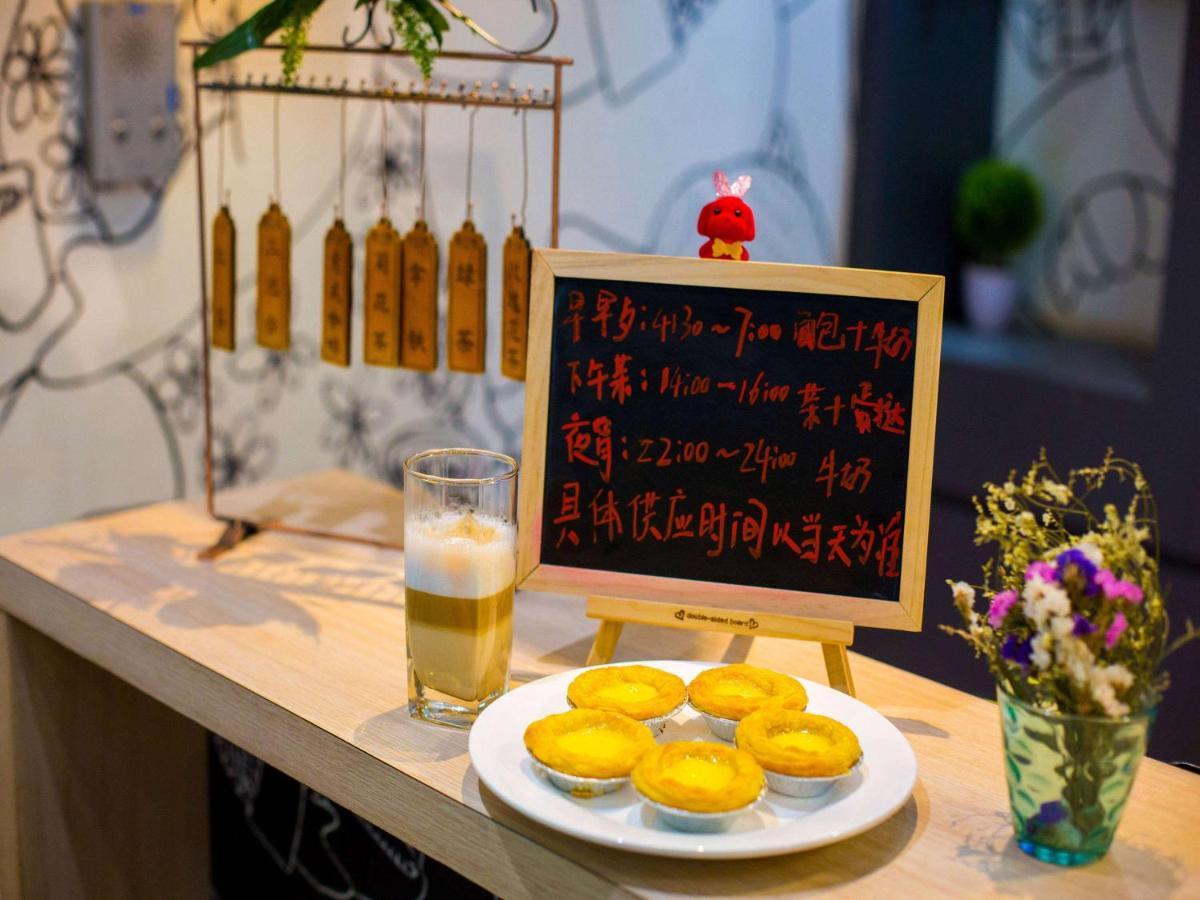 早早夕:4:30~7:00 面包十牛奶
下午茶:14:00-16:00 茶十蛋挞
夜宵:22:00~24:00 牛奶
具体供应时间以当天为准
double-sided board
菊花茶
拿铁
绿茶